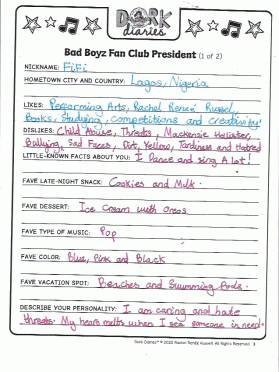 DORK
diaries
Bad Boyz Fan Club President (1 of 2)
NICKNAME: FiFi
HOMETOWN CITY AND COUNTRY: Lagos, Nigeria
LIKES: Performing Arts, Rachel Reneé Russel,
Books, Studying, competitions and creativity
DISLIKES: Child Abuse, Threats, Mackenzie Hollister,
Bullying, Sad Faces, Dirt, Yellow, Tardiness and Hatred
LITTLE-KNOWN FACTS ABOUT YOU: I Dance and sing A lot!
FAVE LATE-NIGHT SNACK: Cookies and Milk.
FAVE DESSERT: Ice cream with oreos
FAVE TYPE OF MUSIC: Pop
FAVE COLOR: Blue, Pink and Black
FAVE VACATION SPOT: Beaches and Swimming Pools.
DESCRIBE YOUR PERSONALITY: I am caring and hate
threats. My heart melts when I see someone in need.
Dork Diaries™ © 2020 Rachel Renée Russell. All Rights Reserved. 3